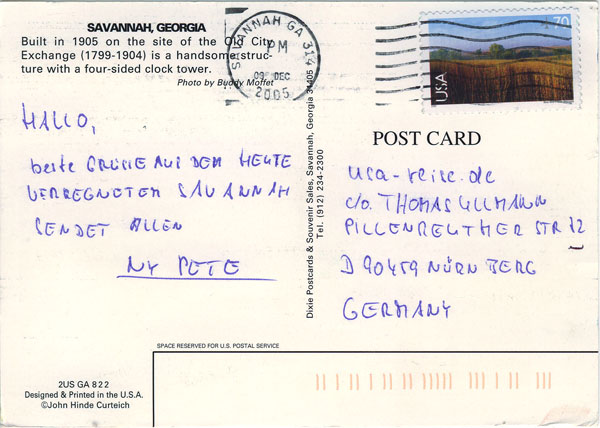 SAVANNAH, GEORGIA
Built in 1905 on the site of the Old City
Exchange (1799-1904) is a handsome struc-
ture with a four-sided clock tower.
Photo by Buddy Moffet
SAVANNAH GA 314
PM
09 DEC
2005
70
USA
HALLO,
beste GRÜSSE AUS DEM HEUTE
VERREGNETEN SAVANNAH
SENDET ALLEN
NY PETE
Dixie Postcards & Souvenir Sales, Savannah, Georgia 31405
Tel. (912) 234-2300
POST CARD
usa-reise.de
c/o. THOMAS ULLMANN
PILLENREUTHER STR 12
D 90459 NÜRNBERG
GERMANY
SPACE RESERVED FOR U.S. POSTAL SERVICE
2US GA 822
Designed & Printed in the U.S.A.
©John Hinde Curteich